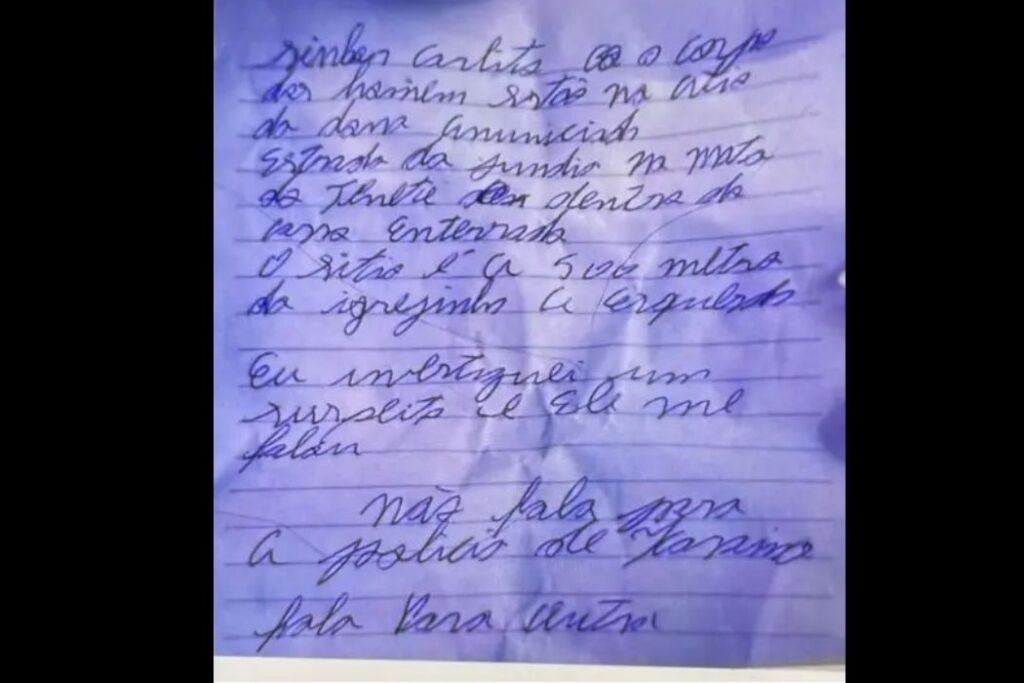 sinhor Carlito o corpo
dos homem estão na
da dona anunciada
Estrada da Jundia na mata
do Tenete dentra da
casa Enterrada
O sitio é a 500 metro
da igrejinha a Esquerda
Eu investiguei um
surpeito e Ele me
falou
não fala para
a policia de Icaraima
fala para outra